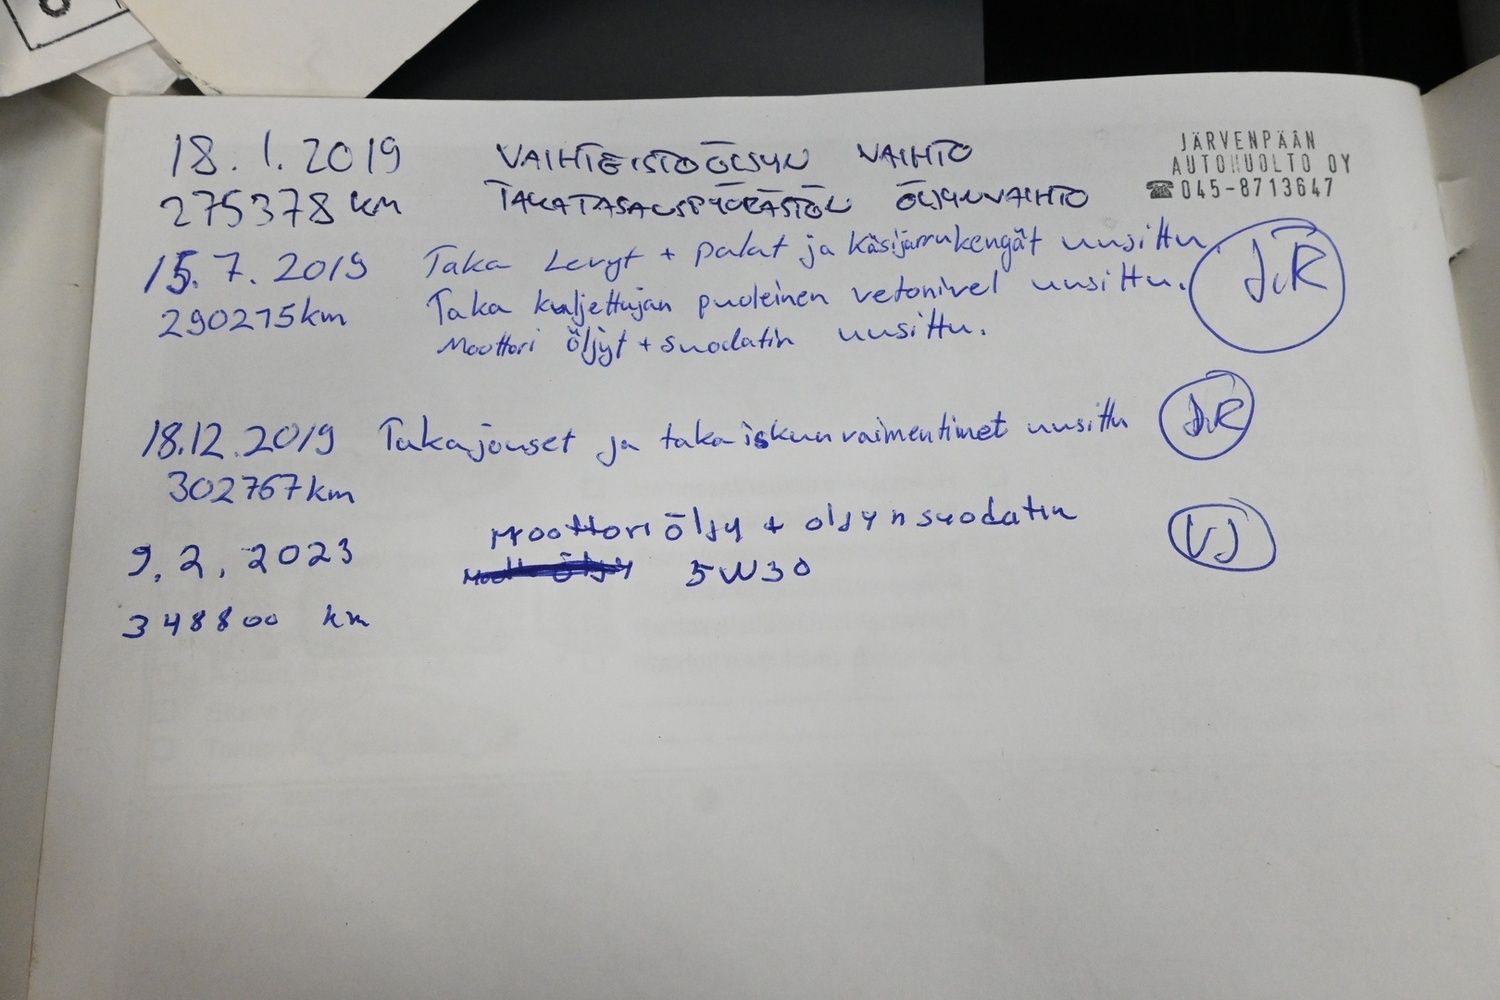 18.1.2019 VAIHTEISTOÖLJYN VAIHTO
275378 km TAKATASAUSPYÖRÄSTÖN ÖLJYNVAIHTO
JÄRVENPÄÄN
AUTOHUOLTO OY
☎045-8713647
15.7.2019 Taka Levyt + palat ja käsijarrukengät uusittu.
290275km Taka kuljettajan puoleinen vetonivel uusittu.
Moottori öljyt + suodatin uusittu.
JvR
18.12.2019 Takajouset ja takaiskunvaimentimet uusittu JvR
302767km
9.2.2023 Moottoriöljy + oljynsuodatin VJ
5W30
348800 km